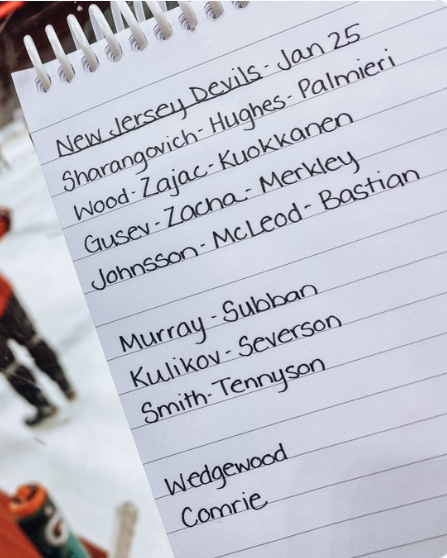 New Jersey Devils - Jan 25
Sharangovich - Hughes - Palmieri
Wood - Zajac - Kuokkanen
Gusev - Zacha - Merkley
Johnsson - McLeod - Bastian
Murray - Subban
Kulikov - Severson
Smith - Tennyson
Wedgewood
Comrie